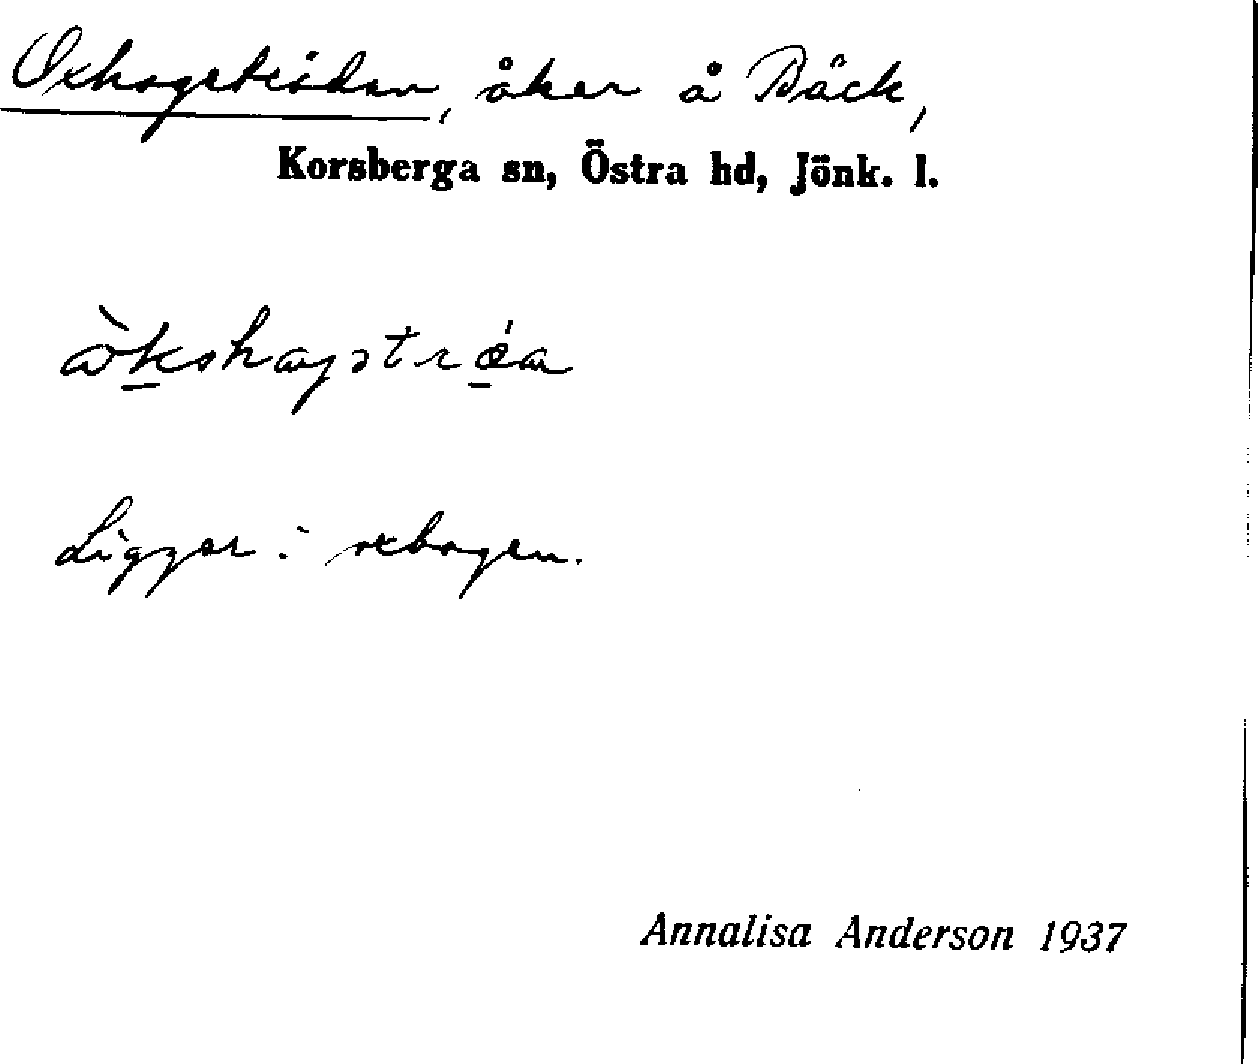 Oxhageträdan, åker å Bäck,
Korsberga sn, Östra hd, Jönk. l.
Ligger i oxhagen.
Annalisa Anderson 1937